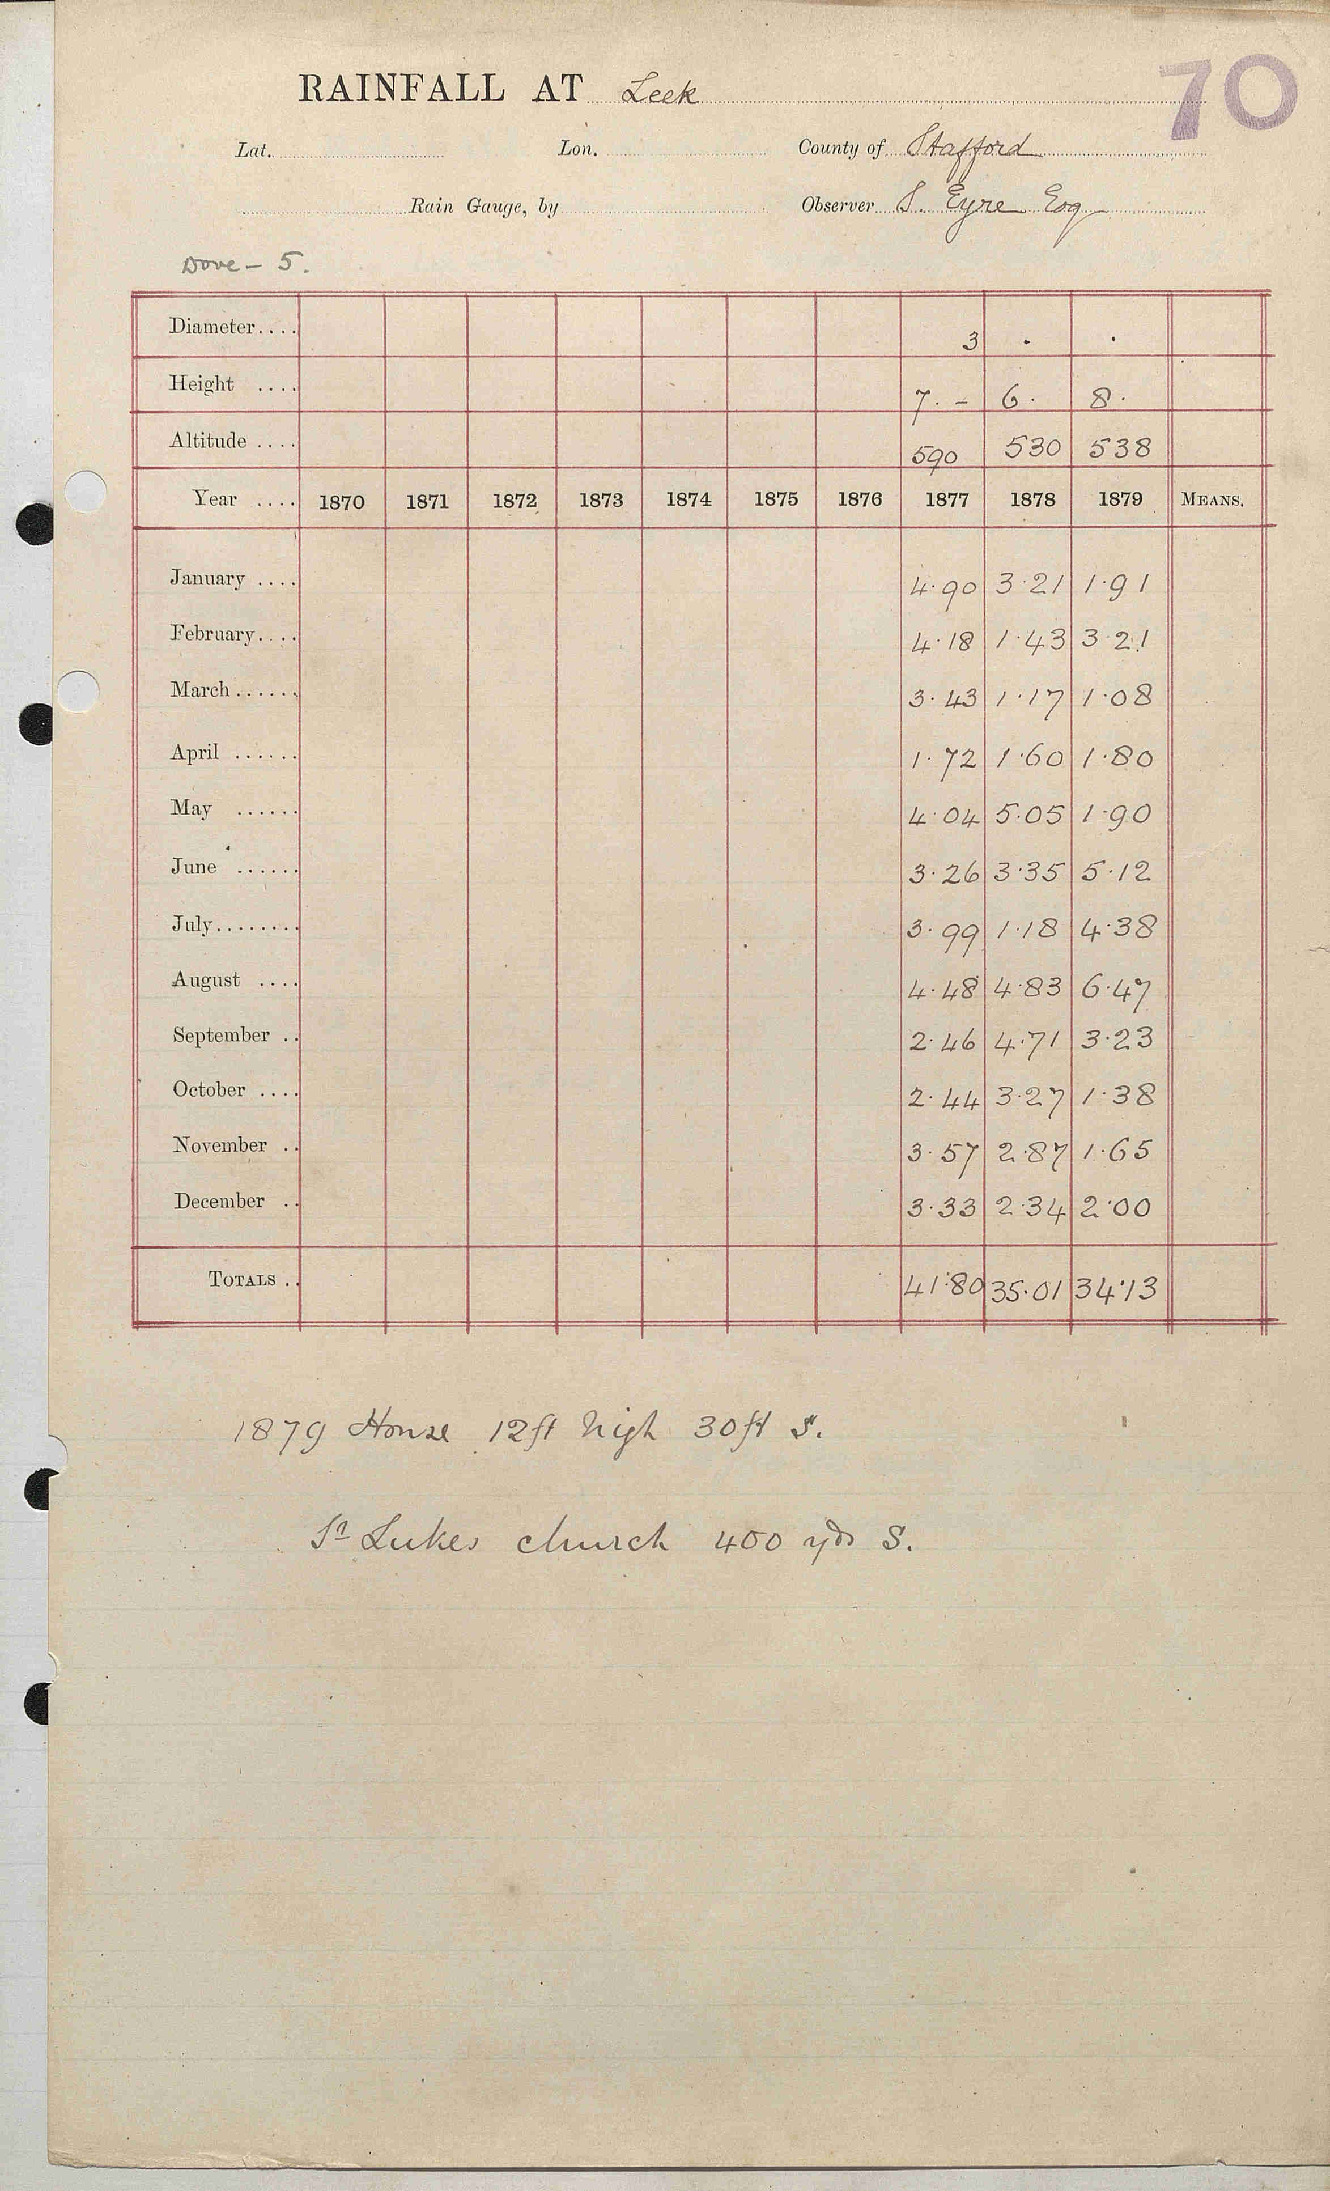 70
RAINFALL AT Leek
Lat. Lon. County of Stafford
Rain Gauge, by Observer S. Eyre Esq
Dove - 5.
Diameter.... 3 . .
Height .... 7. - 6. 8.
Altitude .... 590 530 538
Year .... 1870 1871 1872 1873 1874 1875 1876 1877 1878 1879 MEANS.
January .... 4.90 3.21 1.91
February.... 4.18 1.43 3.21
March...... 3.43 1.17 1.08
April ...... 1.72 1.60 1.80
May ...... 4.04 5.05 1.90
June ...... 3.26 3.35 5.12
July........ 3.99 1.18 4.38
August .... 4.48 4.83 6.47
September .. 2.46 4.71 3.23
October .... 2.44 3.27 1.38
November .. 3.57 2.87 1.65
December .. 3.33 2.34 2.00
TOTALS .. 41.80 35.01 34.13
1879 House 12ft high 30ft S.
St Lukes church 400 yds S.